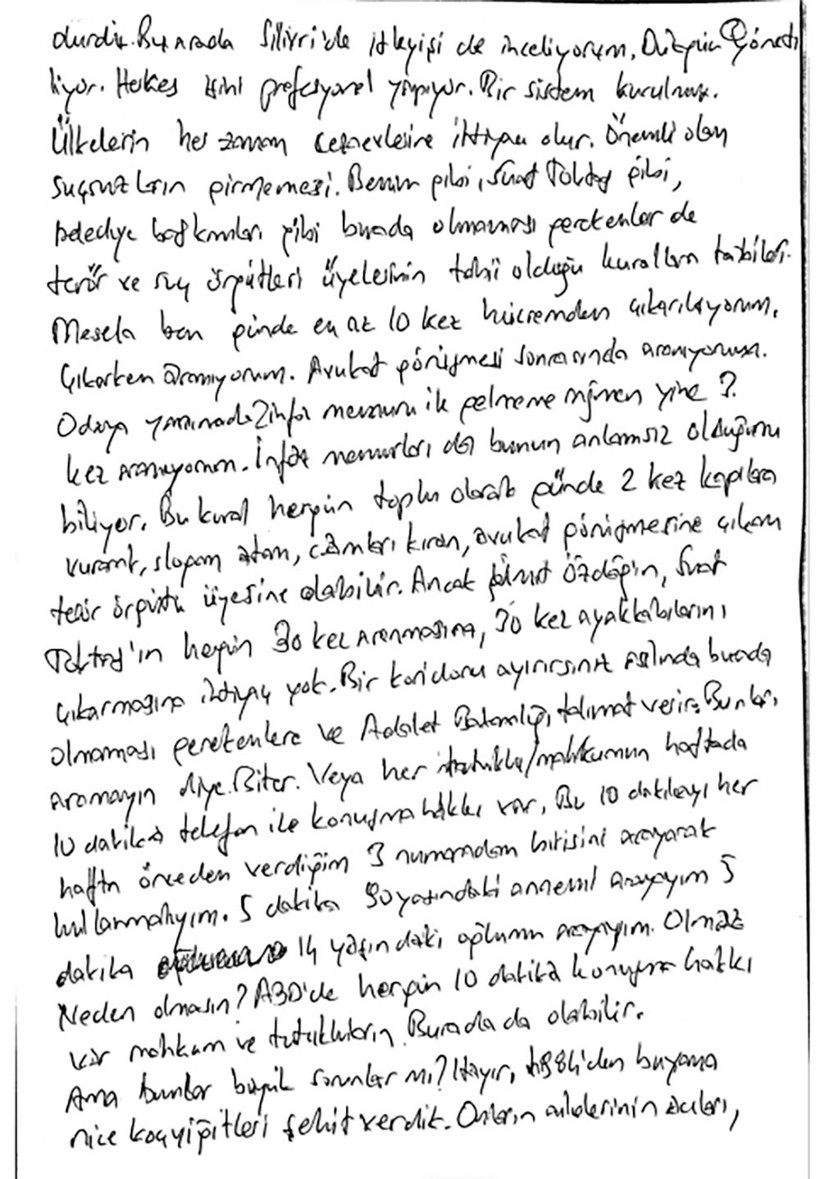 durdu. Bu arada Silivri'de işleyişi de inceliyorum. Düzgün yöneti
liyor. Herkes işini profesyonel yapıyor. Bir sistem kurulmuş.
Ülkelerin her zaman cezaevlerine ihtiyacı olur. Önemli olan
suçsuzların girmemesi. Benim gibi, Suat Toktaş gibi,
belediye başkanları gibi burada olmaması gerekenler de
terör ve suç örgütleri üyelerinin tabii olduğu kurallara tabiler.
Mesela ben günde en az 10 kez hücremden çıkarılıyorum.
Çıkarken aranıyorum. Avukat görüşmesi sonrasında aranıyorum.
Odaya yanımda 2 infaz memuru ile gelmeme rağmen yine 3.
kez aranıyorum. İnfaz memurları da bunun anlamsız olduğunu
biliyor. Bu kural hergün toplu olarak günde 2 kez kapılara
vuran, slogan atan, camları kıran, avukat görüşmesine çıkan
terör örgütü üyesine olabilir. Ancak Ümit Özdağ'ın, Suat
Toktaş'ın hergün 30 kez aranmasına, 30 kez ayakkabılarını
çıkarmasına ihtiyaç yok. Bir koridoru ayırırsınız aslında burada
olmaması gerekenlere ve Adalet Bakanlığı, talimat verir. Bunları
aramayın diye. Biter. Veya her tutuklu/mahkumun haftada
10 dakika telefon ile konuşma hakkı var. Bu 10 dakikayı her
hafta önceden verdiğim 3 numaradan birisini arayarak
kullanmalıyım. 5 dakika 90 yaşındaki annemi arayayım 5
dakika 14 yaşındaki oğlumu arayayım. Olmaz
Neden olmasın? ABD'de hergün 10 dakika konuşma hakkı
var mahkum ve tutukluların. Burada da olabilir.
Ama bunlar büyük sorunlar mı? Hayır, 1984'den buyana
nice koçyiğitleri şehit verdik. Onların ailelerinin acıları,